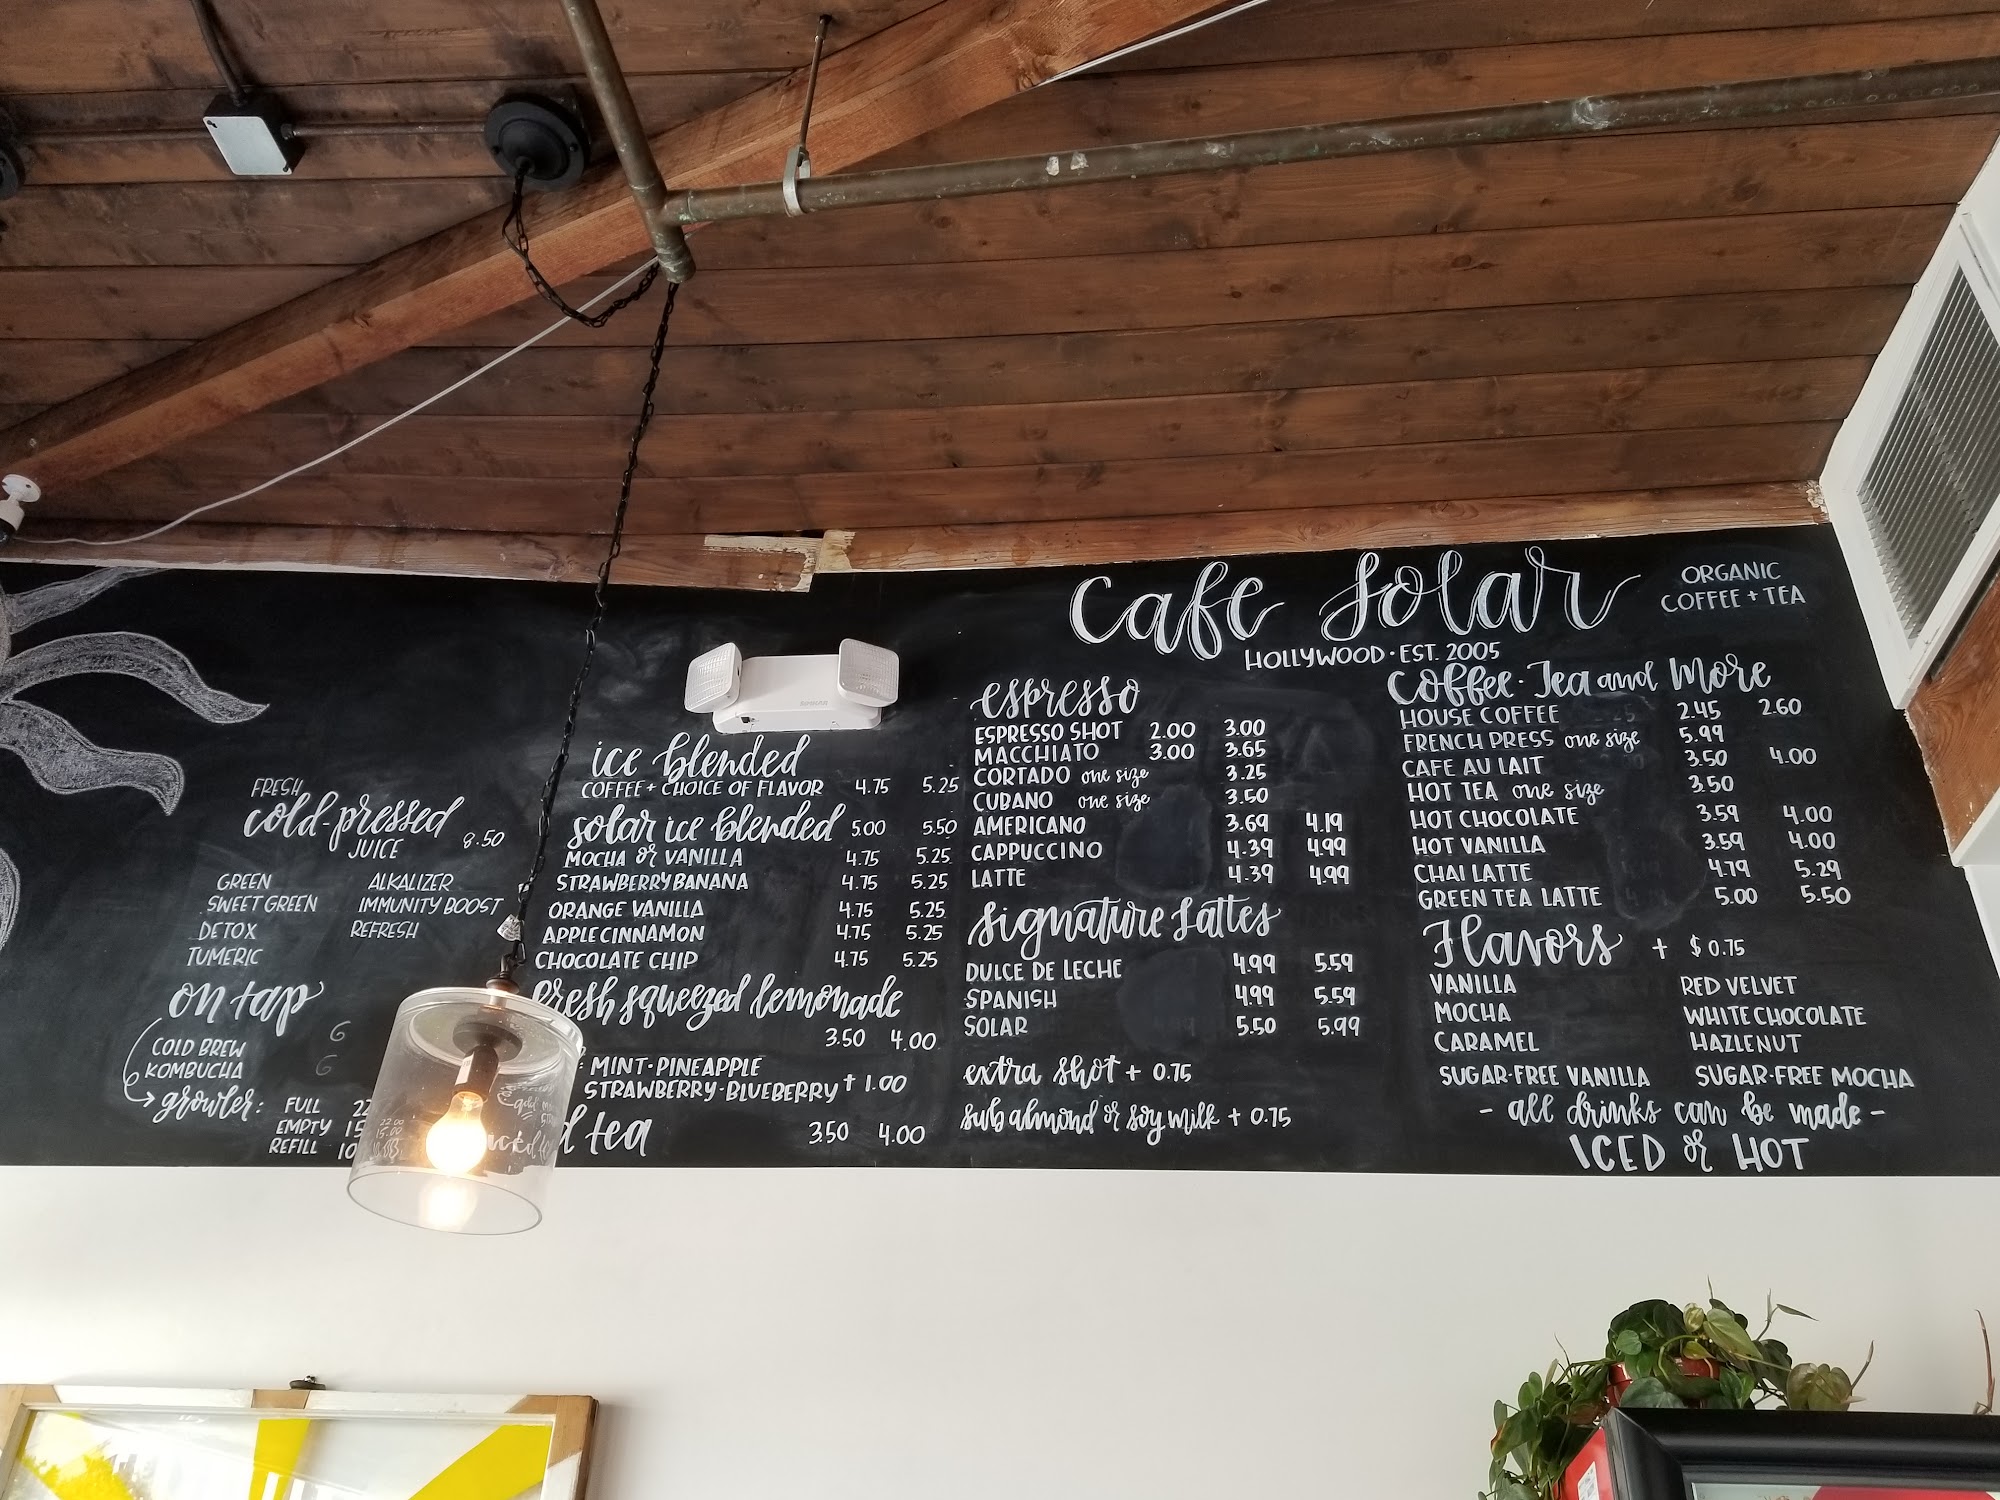 Cafe Solar
HOLLYWOOD · EST. 2005
ORGANIC
COFFEE + TEA
FRESH
cold-pressed
JUICE 8.50
GREEN ALKALIZER
SWEET GREEN IMMUNITY BOOST
DETOX REFRESH
TUMERIC
on tap
COLD BREW 6
KOMBUCHA 6
growler: FULL 22
EMPTY 15
REFILL 10
ice blended
COFFEE + CHOICE OF FLAVOR 4.75 5.25
solar ice blended 5.00 5.50
MOCHA or VANILLA 4.75 5.25
STRAWBERRY BANANA 4.75 5.25
ORANGE VANILLA 4.75 5.25
APPLE CINNAMON 4.75 5.25
CHOCOLATE CHIP 4.75 5.25
fresh squeezed lemonade
3.50 4.00
MINT · PINEAPPLE
STRAWBERRY · BLUEBERRY + 1.00
tea 3.50 4.00
espresso
ESPRESSO SHOT 2.00 3.00
MACCHIATO 3.00 3.65
CORTADO one size 3.25
CUBANO one size 3.50
AMERICANO 3.69 4.19
CAPPUCCINO 4.39 4.99
LATTE 4.39 4.99
Signature Lattes
DULCE DE LECHE 4.99 5.59
SPANISH 4.99 5.59
SOLAR 5.50 5.99
extra shot + 0.75
sub almond or soy milk + 0.75
Coffee · Tea and More
HOUSE COFFEE 2.45 2.60
FRENCH PRESS one size 5.99
CAFE AU LAIT 3.50 4.00
HOT TEA one size 3.50
HOT CHOCOLATE 3.59 4.00
HOT VANILLA 3.59 4.00
CHAI LATTE 4.79 5.29
GREEN TEA LATTE 5.00 5.50
Flavors + $0.75
VANILLA RED VELVET
MOCHA WHITE CHOCOLATE
CARAMEL HAZLENUT
SUGAR-FREE VANILLA SUGAR-FREE MOCHA
- all drinks can be made -
ICED or HOT